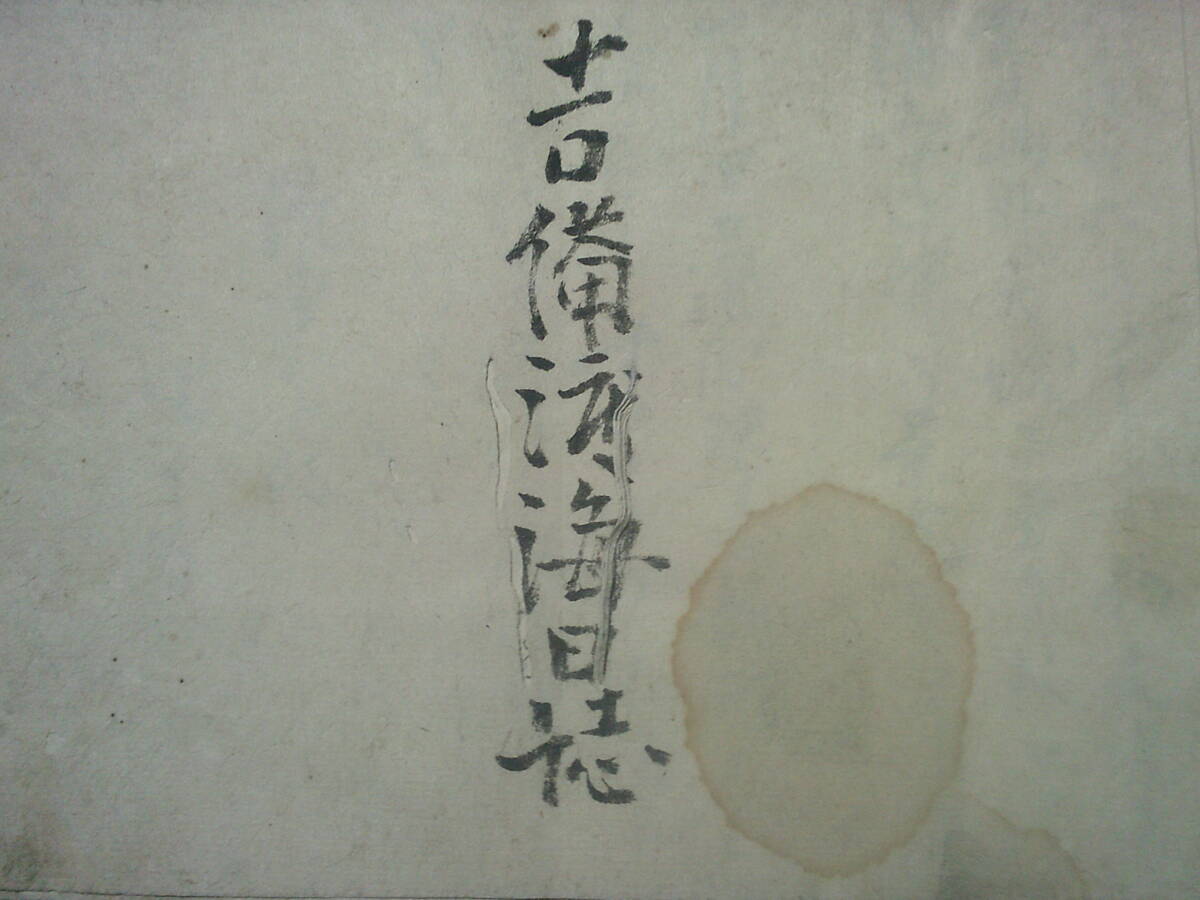 吉備渡海日誌